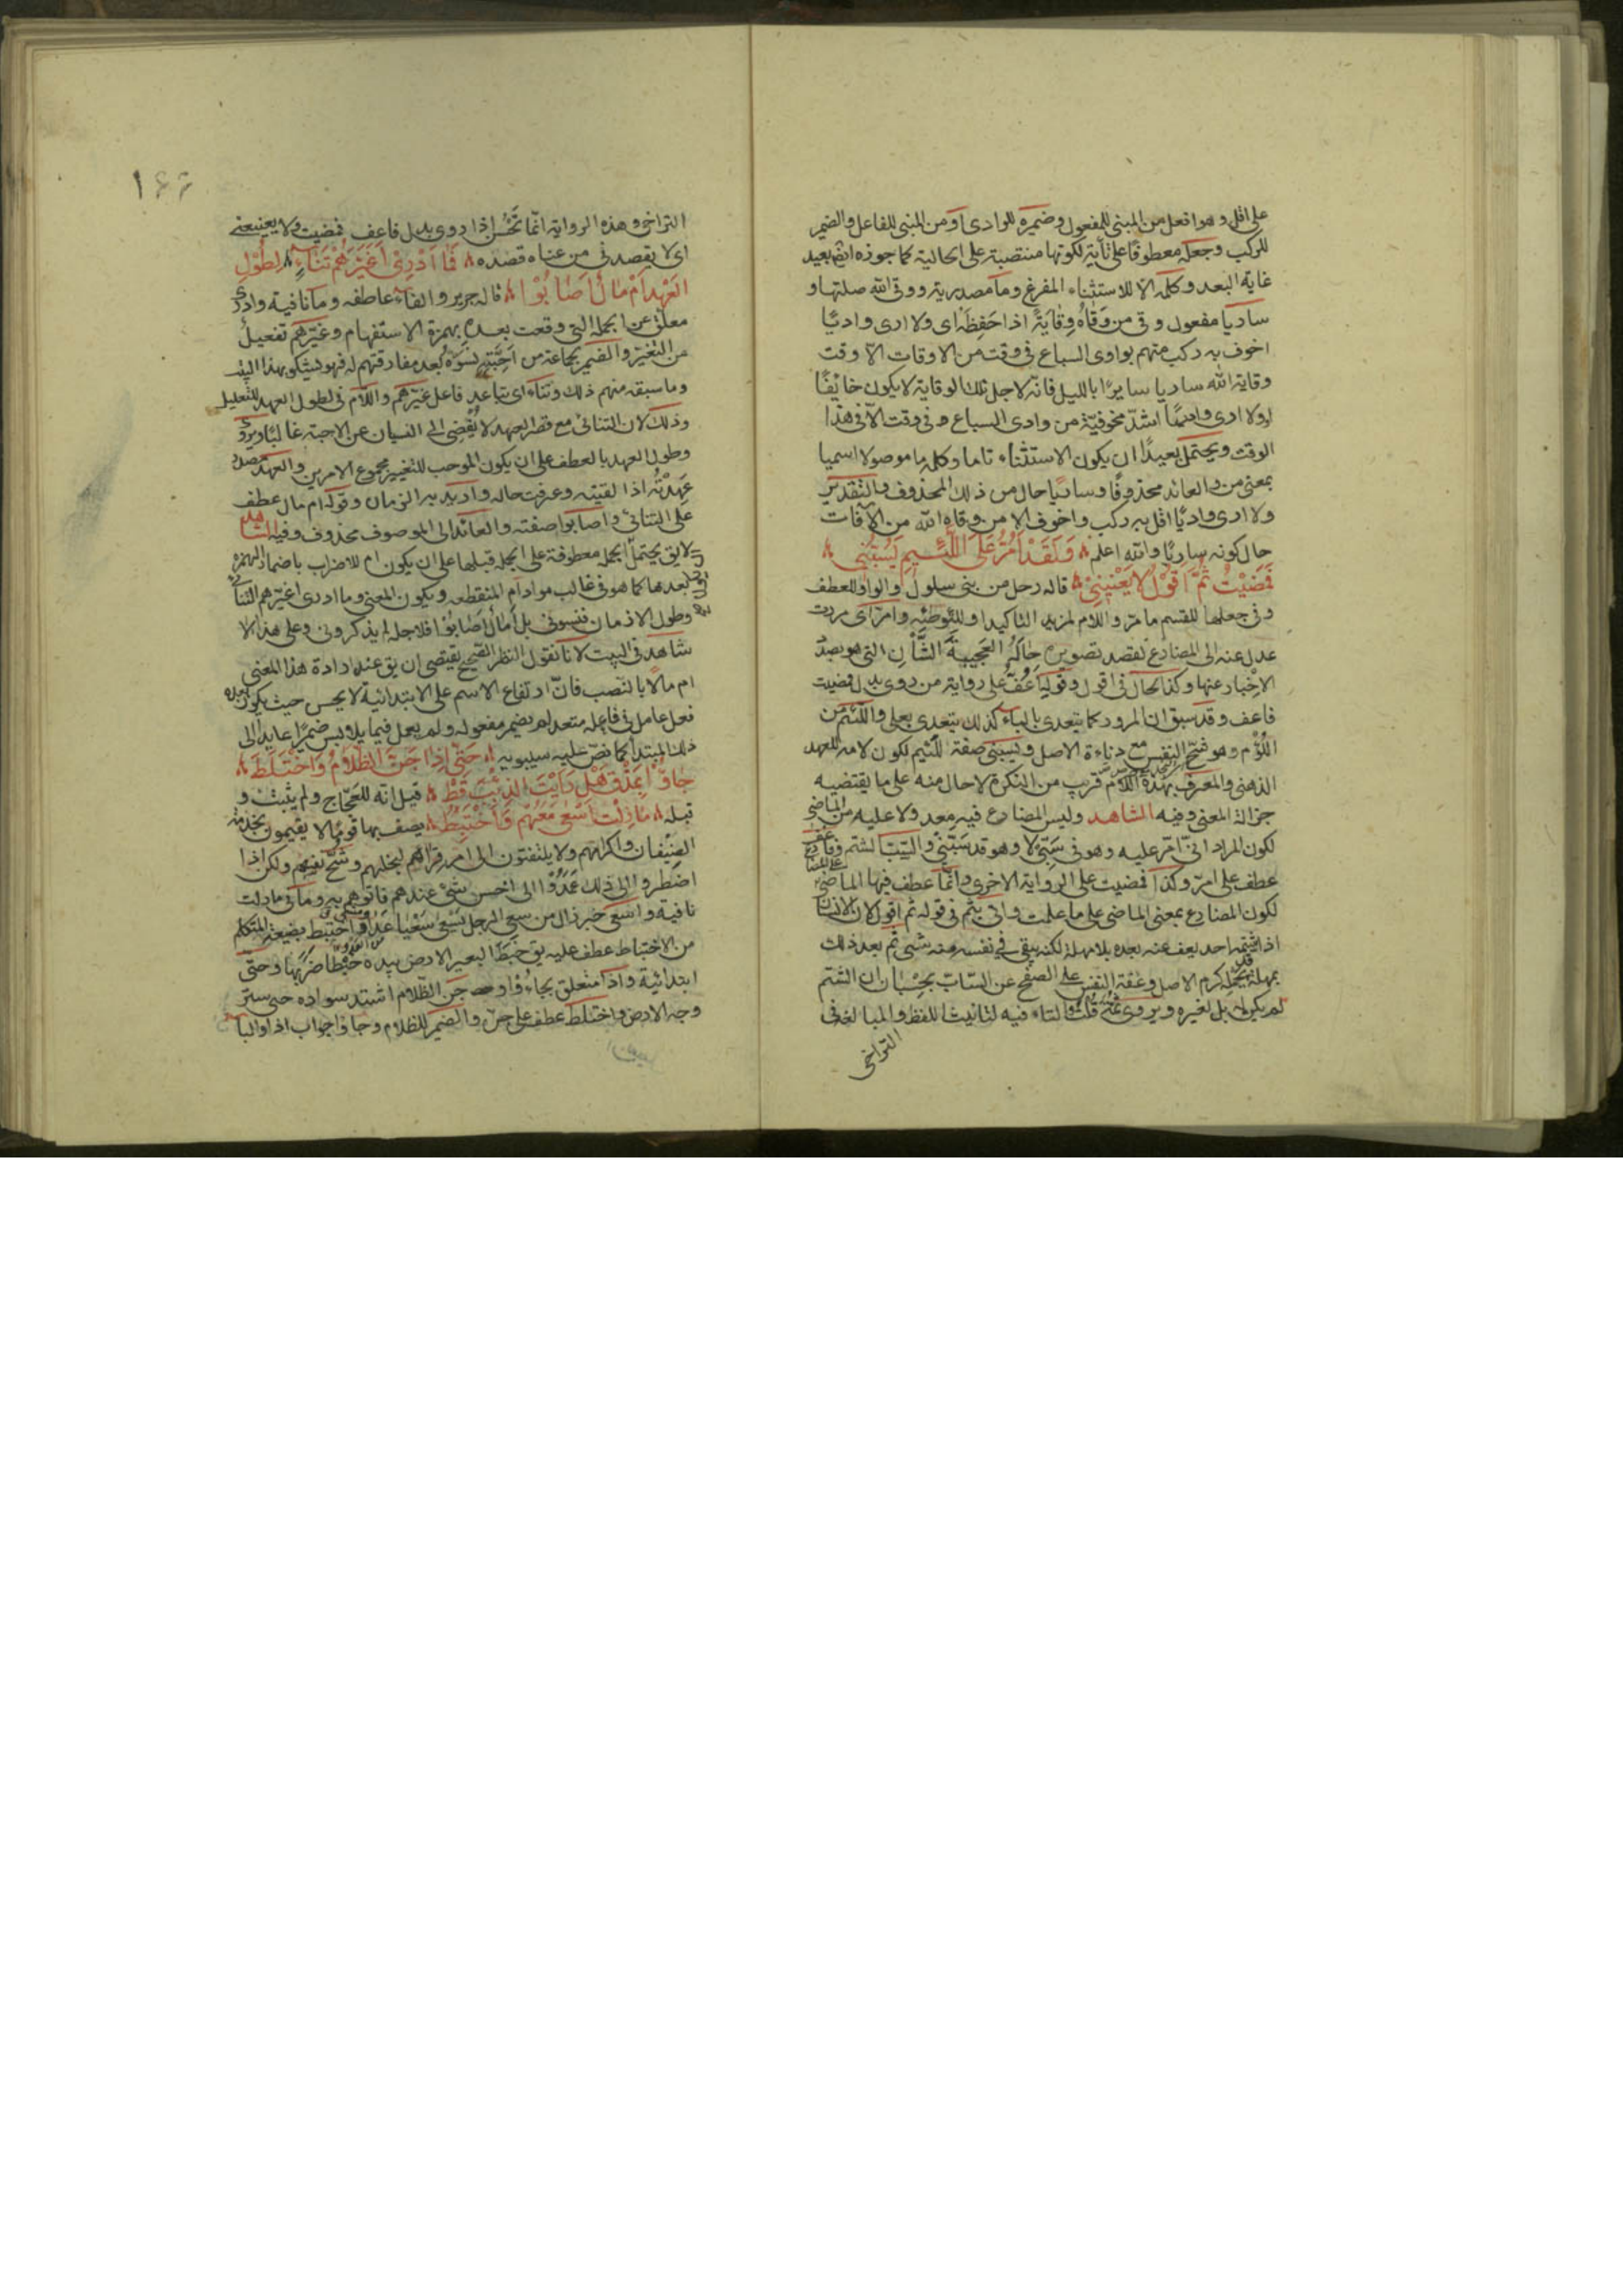 على اقل وهو افعل من المبنى للمفعول وضميره للوادى او من المبنى للفاعل والضمير
للركب وجعله معطوفا على تأية لكونها منتصبة على الحالية كما جوزه ايضا بعيد
غاية البعد وكلمة الا للاستثناء المفرغ وما مصدرية ووقى الله صلتها و
ساريا مفعول وقى من وَقَاهُ وِقَايَةً اذا حَفِظَه اى ولا ارى واديًا
اخوف به ركب منهم بوادى السباع فى وقت من الاوقات الا وقت
وقاية الله ساريا سايرًا بالليل فانه لاجل تلك الوقاية لا يكون خايفًا
اولا ارى واديًا اشدّ مخوفية من وادى السباع فى وقت الا فى هذا
الوقت ويحتمل بعيدًا ان يكون الاستثناء تاما وكلمة ما موصولا اسميا
بمعنى من والعائد محذوفًا وساريًا حال من ذلك المحذوف والتقدير
ولا ارى واديًا اقل به ركب واخوف الا من وقاه الله من الآفات
حال كونه ساريًا والله اعلم وَلَقَدْ اَمُرُّ عَلَى اللَّئِيمِ يَسُبُّنِى
فَمَضَيْتُ ثُمَّ اَقُوْلُ لَا يَعْنِيْنِىْ قاله رجل من بنى سلول والواو للعطف
وفى جعلها للقسم ما مرّ واللام لمزيد التاكيد او للتوطئه وامرّ اى مررت
عدل عنه الى المضارع لقصد تصوير حاله العَجِيبَة الشَّأن التى هو بصدد
الاخبار عنها وكذا الحال فى اقول وقوله اَعُفُّ على رواية من روى بدل فمضيت
فاعف وقد سبق ان المرور كما يتعدى بالباء كذلك يتعدى بعلى واللئيم من
اللؤم وهو شح النفس مع دناءة الاصل ويسبنى صفة للئيم لكون لامه للعهد
الذهنى والمعرف بهذه اللام قريب من النكرة لا حال منه على ما يقتضيه
جزالة المعنى وفيه الشاهد وليس المضارع فيه معد ولا عليه من الماضى
لكون المراد انى امرّ عليه وهو فى سَبّى لا وهو قد سَبَّنى والسَبّ الشتم
عطف على امرّ وكذا فمضيت على الرواية الاخرى وانما عطف فيها الماضى
لكون المضارع بمعنى الماضى على ما علمت واتى بثم فى قوله ثم اقول لان الانسان
اذا شتمه احد يعف عنه بعده بلا مهلة لكنه يبقى فى نفسه منه شىء ثم بعد ذلك
بمهلة يحمله كرم الاصل وعفة النفس على الصفح عن السّابّ بحِسْبان ان الشتم
لم يكن له بل لغيره ويروى ثُمَّتَ قُلْتُ والتاء فيه لتانيث اللفظ والمبالغة فى
التراخى
١٦٦
التراخى وهذه الرواية انما تَحْسُن اذا روى بدل فاعف فمضيت ولا يعنينى
اى لا يقصدنى من عناه قصده فَمَا اَدْرِىْ اَغَيَّرَهُمْ تَنَاءٍ لِطُوْلِ
العَهْدِ اَمْ مَالٌ اَصَابُوْا قاله جرير والفاء عاطفه وما نافية وادرى
معلق عن الجملة التى وقعت بعده بهمزة الاستفهام وغَيَّرهم تفعيل
من التغير والضمير لجماعة من اَحِبَّتِه نَسَوْهُ بعد مفارقتهم له فهو يشكو بهذا البيت
وما سبقه منهم ذلك وتناء اى تباعد فاعل غيّرهم واللام فى لطول العهد للتعليل
وذلك لان التنائى مع قصر العهد لا يُفْضى الى النسيان عن الاحبة غالبًا ويروى
وطول العهد بالعطف على ان يكون الموجب للتغيير مجموع الامرين والعهد مصدر
عَهِدْتُه اذا لقيته وعرفت حاله واريد به الزمان وقوله ام مال عطف
على التنائى واصابوا صفته والعائد الى الموصوف محذوف وفيه الشاهد
لايق يحتمل الجملة معطوفة على الجملة قبلها على ان يكون ام للاضراب باضمار الهمزة
بعدها كما هو فى غالب موارد ام المنقطعه ويكون المعنى وما ادرى اغيّرهم التنائى
وطول الازمان فنسونى بل أمالٌ اَصَابُوْا فلاجله لم يذكرونى وعلى هذا لا
شاهد فى البيت لانا نقول النظر الصحيح يقتضى ان يق عند ارادة هذا المعنى
ام مالًا بالنصب فان ارتفاع الاسم على الابتدائية لا يحسن حيث يكون بعده
فعل عامل فى فاعله متعد لم يضمر مفعوله ولم يعمل فيما يلابس ضميرًا عايدًا الى
ذلك المبتدا كما نصّ عليه سيبويه حَتّى اِذَا جَنَّ الظَّلَامُ وَاخْتَلَطَ
جَاؤُا بِمَذْقٍ هَلْ رَاَيْتَ الذِئْبَ قَطْ قيل انه للعجّاج ولم يثبت و
قبله مَازِلْتُ اَسْعَى مَعَهُمْ وَاَخْتَبِطُ يصف بها قومًا لا يقيمون بخدمة
الضيفان واكرامهم ولا يلتفتون الى امر قِرَاهم لبخلهم وشُحّ نفسهم ولكن اذا
اضطروا الى ذلك عَمَدُوْا الى اخس شىء عندهم فاتوهم به وما فى مازلت
نافية واسعى خبر زال من سعى الرجل يسعى سَعْيا عَدَا واختبط بصيغة المتكلم
من الاختباط عطف عليه يق خَبَطَ البعير الارض بيده خَبْطًا ضربها وحتى
ابتدائية واذا متعلق بجاءُوْا و جَنّ الظّلام اشتد سواده حتى ستر
وجه الارض واختلط عطف على جنّ والضمير للظلام وجاؤا جواب اذا والباء